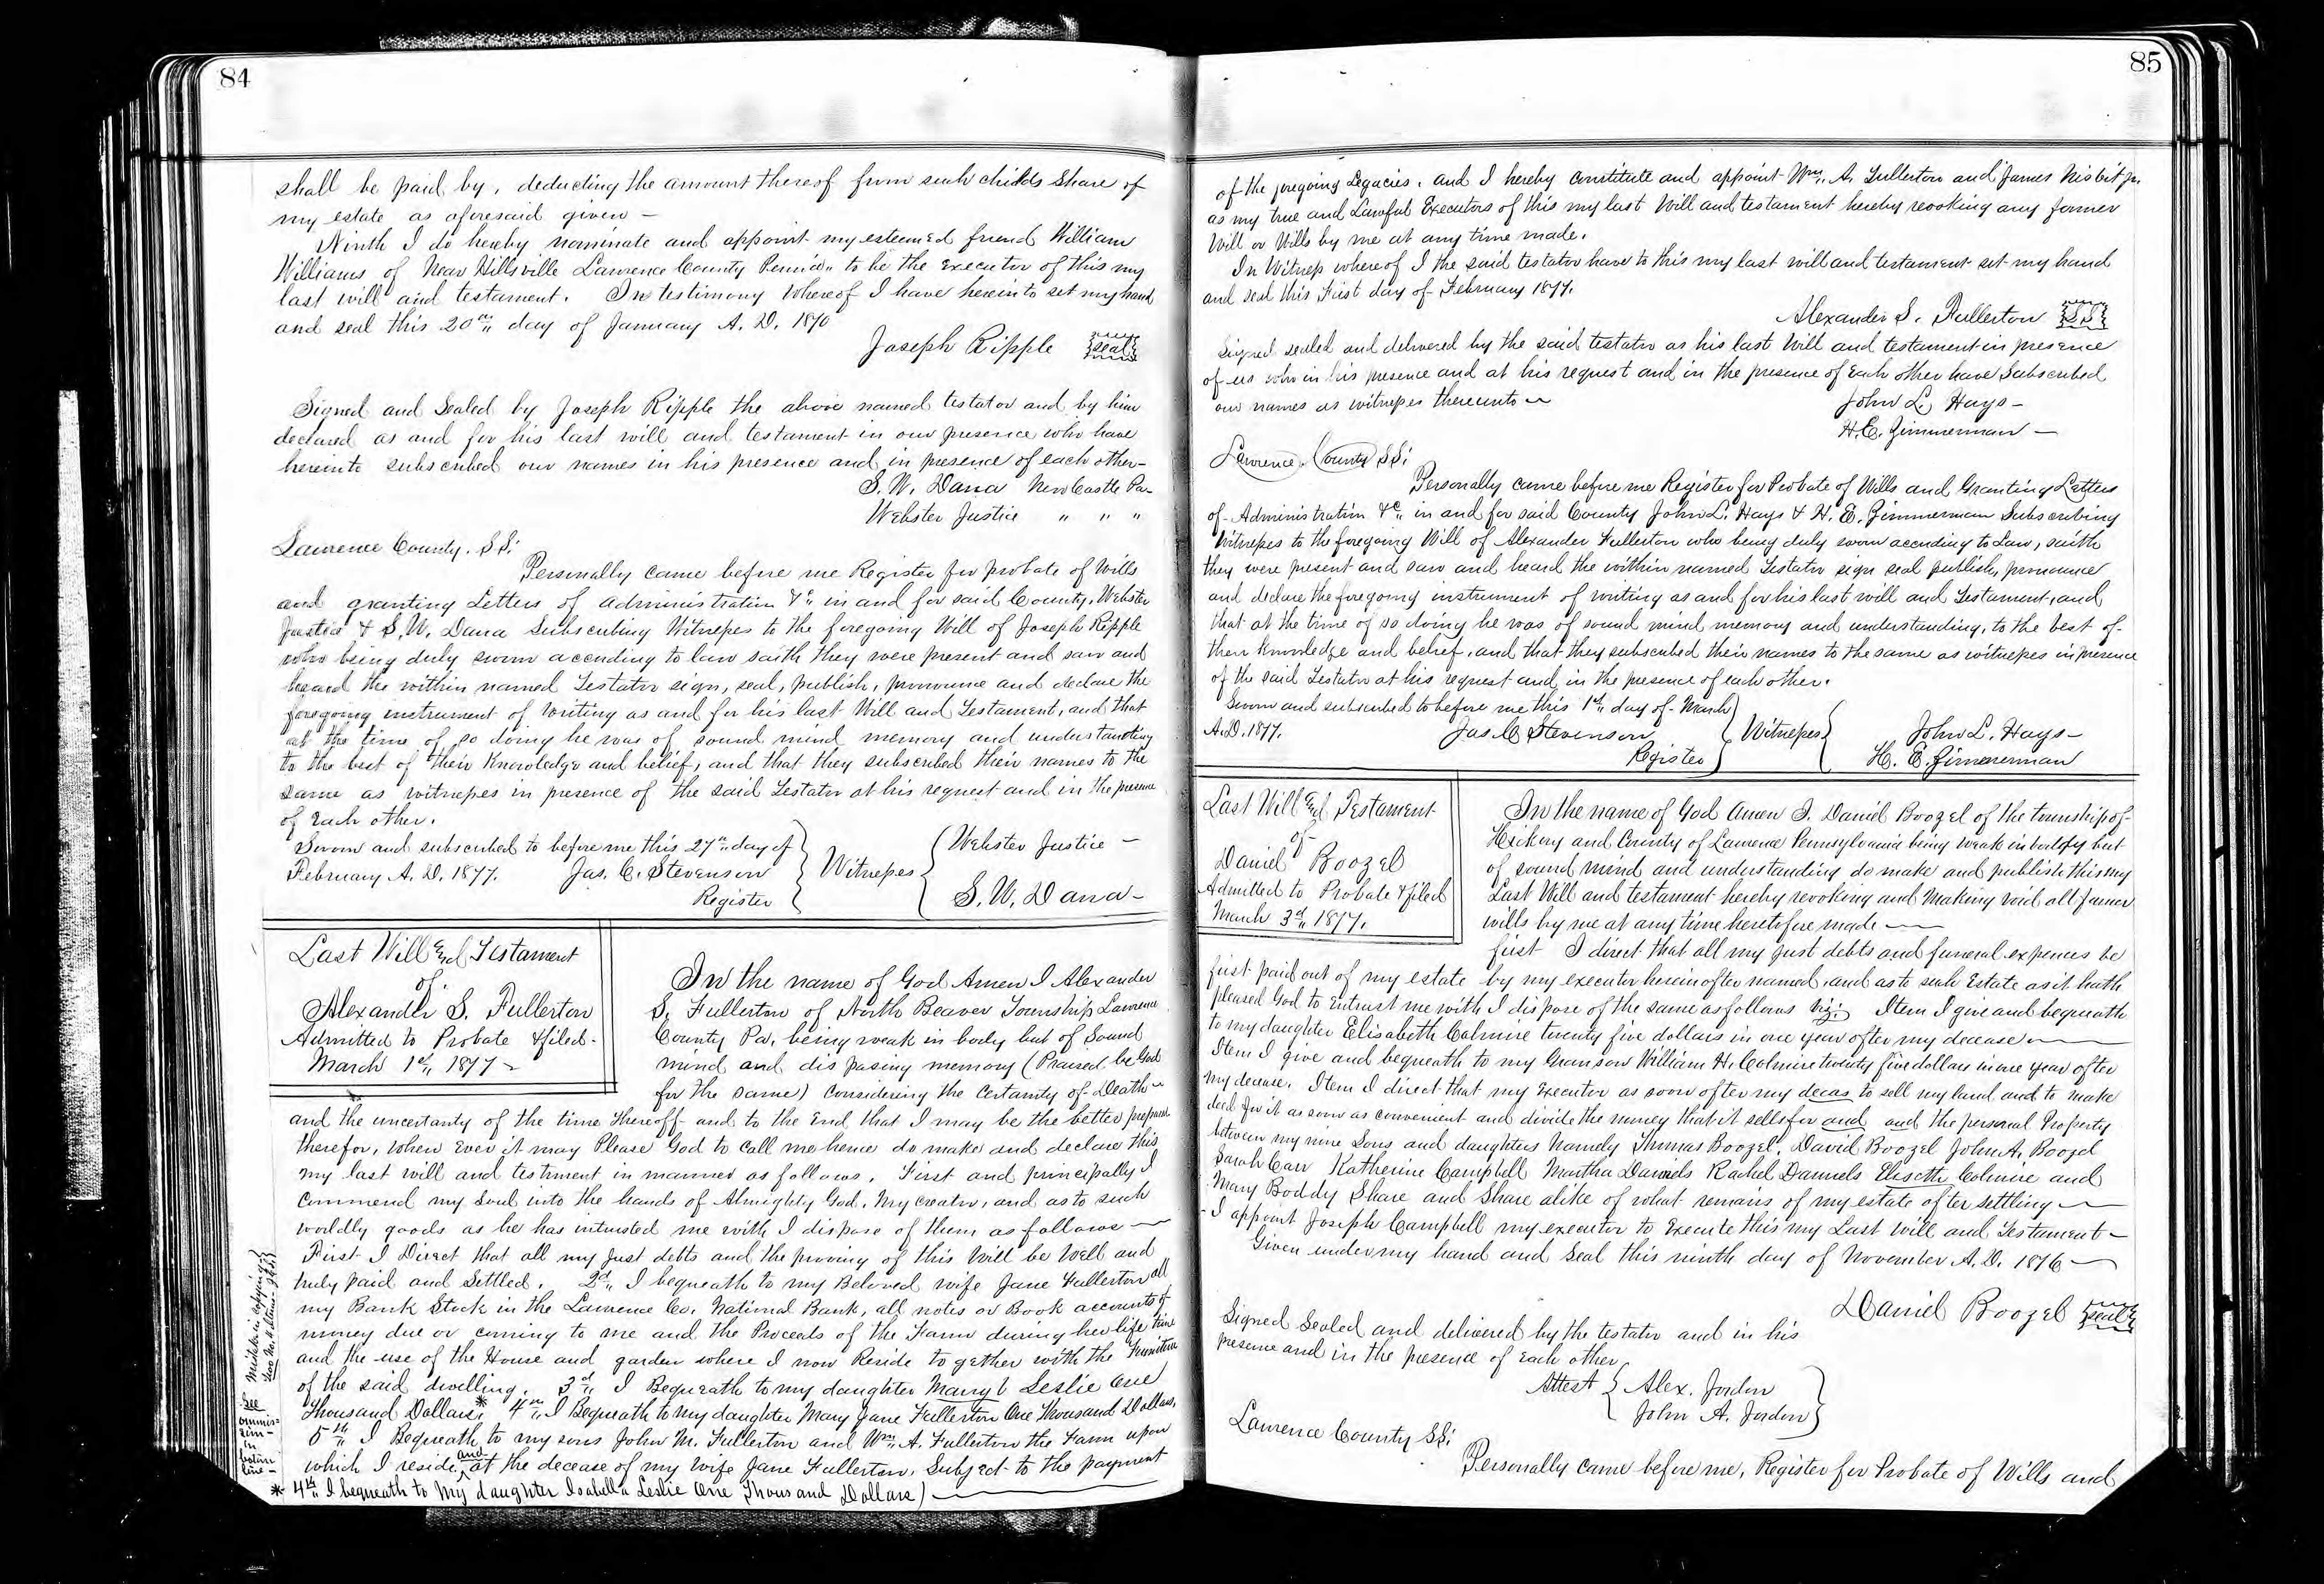 84
shall be paid by, deducting the amount thereof from such childs Share of
my estate as aforesaid given —
Ninth I do hereby nominate and appoint my esteemed friend William
Williams of Near Hillsville Lawrence County Penn'a" to be the executor of this my
last will and testament. In testimony whereof I have hereinto set my hand
and seal this 20th" day of January A. D. 1870
Joseph Ripple seal
Signed and Sealed by Joseph Ripple the above named testator and by him
declared as and for his last will and testament in our presence who have
hereinto subscribed our names in his presence and in presence of each other—
S. W. Dana New Castle Pa—
Webster Justice " " "
Lawrence County. SS:
Personally came before me Register for probate of Wills
and granting Letters of administration &c" in and for said County, Webster
Justice & S. W. Dana Subscribing Witnesses to the foregoing Will of Joseph Ripple
who being duly sworn according to law saith they were present and saw and
heard the within named Testator sign, seal, publish, pronounce and declare the
foregoing instrument of writing as and for his last Will and Testament, and that
at the time of so doing he was of sound mind memory and understanding
to the best of their Knowledge and belief, and that they subscribed their names to the
same as witnesses in presence of the said Testator at his request and in the presence
of Each other.
Sworn and subscribed to before me this 27th" day of
February A. D. 1877. Jas. C. Stevenson
Register
Witnesses
Webster Justice —
S. W. Dana —
Last Will and Testament
of
Alexander S. Fullerton
Admitted to Probate & filed.
March 1st" 1877 ~
In the name of God Amen I Alexander
S. Fullerton of North Beaver Township Lawrence
County Pa. being weak in body but of Sound
mind and disposing memory (Praised be God
for the same) Considering the Certainty of Death
and the uncertanty of the time thereoff and to the End that I may be the better prepared
therefor, when Ever it may Please God to Call me hence do make and declare this
my last will and testiment in manner as follows. First and principally I
Commend my Soul into the hands of Almighty God, My creator, and as to such
worldly goods as he has intrusted me with I dispose of them as follows —
First I Direct that all my just debts and the proving of this Will be Well and
truly paid and Settled. 2d" I bequeath to my Beloved wife Jane Fullerton all
my Bank Stock in the Lawrence Co. National Bank, all notes or Book accounts of
money due or coming to me and the Proceeds of the Farm during her life time
and the use of the House and garden where I now Reside to gether with the Furniture
of the said dwelling. 3d" I Bequeath to my daughter Margt Leslie One
Thousand Dollars* 4th" I Bequeath to my daughter Mary Jane Fullerton One Thousand Dollars,
5th" I Bequeath to my sons John M. Fullerton and Wm" A. Fullerton the Farm upon
which I reside, and at the decease of my Wife Jane Fullerton, Subject to the payment
* 4th" I bequeath to My daughter Isabella Leslie One Thousand Dollars) —
Mistake in copying
See
ommis=
sion—
in
bottom
line—
85
of the foregoing Legacies. and I hereby Constitute and appoint Wm" A. Fullerton and James Nisbit Jr.
as my true and Lawful Executors of this my last Will and testament hereby revoking any former
Will or Wills by me at any time made.
In Witness whereof I the said testator have to this my last will and testament set my hand
and seal this First day of February 1877.
Alexander S. Fullerton SS
Signed sealed and delivered by the said testator as his last Will and testament in presence
of us who in his presence and at his request and in the presence of Each other have Subscribed
our names as witnesses thereunto ~
John L. Hays —
H. E. Zimmerman —
Lawrence County SS:
Personally came before me Register for Probate of Wills and Granting Letters
of Administration &c" in and for said County John L. Hays & H. E. Zimmerman Subscribing
Witnesses to the foregoing Will of Alexander Fullerton who being duly sworn according to Law, saith
they were present and saw and heard the within named Testator sign seal publish, pronounce
and declare the foregoing instrument of writing as and for his last will and Testament, and
that at the time of so doing he was of sound mind memory and understanding, to the best of
their knowledge and belief, and that they subscribed their names to the same as witnesses in presence
of the said Testator at his request and in the presence of each other.
Sworn and subscribed to before me this 1st" day of March
A. D. 1877. Jas. C Stevenson
Register
Witnesses
John L. Hays —
H. E. Zimmerman
Last Will and Testament
of
Daniel Boozel
Admitted to Probate & filed
March 3d" 1877.
In the name of God Amen I, Daniel Boozel of the township of
Hickory and County of Lawrence Pennsylvania being weak in body but
of sound mind and understanding do make and publish this my
Last Will and testament hereby revoking and Making void all former
wills by me at any time heretofore made —
first I direct that all my just debts and funeral expences be
first paid out of my estate by my executor herein after named, and as to such Estate as it hath
pleased God to Entrust me with I dispose of the same as follows Viz: Item I give and bequeath
to my daughter Elisabeth Colmire twenty five dollars in one year after my decease —
Item I give and bequeath to my Granson William H. Colmire twenty five dollars in one year after
my decease. Item I direct that my Executor as soon after my deceas to sell my land and to make
deed for it as soon as convenient and divide the money that it sells for and and the personal Property
between my nine Sons and daughters Namely Thomas Boozel, David Boozel John A. Boozel
Sarah Carr Katherine Campbell Martha Daniels Rachel Daniels Elisebth Colmire and
Mary Boddy Share and Share alike of what remains of my estate after settling —
I appoint Joseph Campbell my executor to Execute this my Last Will and Testament —
Given under my hand and Seal this ninth day of November A. D. 1876 —
Daniel Boozel seal
Signed Sealed and delivered by the testator and in his
presence and in the presence of Each other
Attest Alex. Jordon
John A. Jordon
Lawrence County SS:
Personally came before me, Register for Probate of Wills and